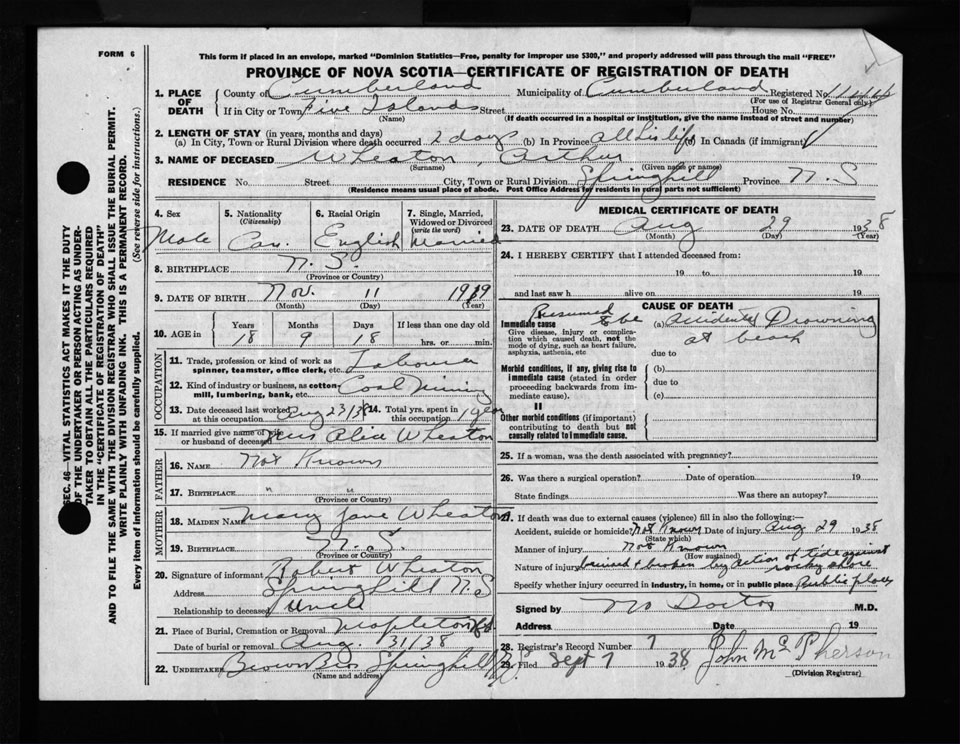 FORM 6
This form if placed in an envelope, marked "Dominion Statistics—Free, penalty for improper use $300," and properly addressed will pass through the mail "FREE"
PROVINCE OF NOVA SCOTIA—CERTIFICATE OF REGISTRATION OF DEATH
1. PLACE OF DEATH County of Cumberland Municipality of Cumberland Registered No.
(For use of Registrar General only)
If in City or Town Five Islands Street House No.
(Name) (If death occurred in a hospital or institution, give the name instead of street and number)
2. LENGTH OF STAY (in years, months and days)
(a) In City, Town or Rural Division where death occurred 2 days (b) In Province all his life (c) In Canada (if immigrant)
3. NAME OF DECEASED Wheaton, Arthur
(Surname) (Given name or names)
RESIDENCE No. Street City, Town or Rural Division Springhill Province N.S
(Residence means usual place of abode. Post Office Address for residents in rural parts not sufficient)
4. Sex 5. Nationality (Citizenship) 6. Racial Origin 7. Single, Married, Widowed or Divorced (write the word)
Male Can. English Married
8. BIRTHPLACE N.S.
(Province or Country)
9. DATE OF BIRTH Nov. 11 1919
(Month) (Day) (Year)
10. AGE in Years Months Days If less than one day old
18 9 18 hrs. or min.
OCCUPATION
11. Trade, profession or kind of work as spinner, teamster, office clerk, etc. Labourer
12. Kind of industry or business, as cotton mill, lumbering, bank, etc. Coal Mining
13. Date deceased last worked at this occupation Aug 23/38 14. Total yrs. spent in this occupation 1 year
15. If married give name of wife or husband of deceased Mrs Alice Wheaton
FATHER
16. NAME Not Known
17. BIRTHPLACE " "
(Province or Country)
MOTHER
18. MAIDEN NAME Mary Jane Wheaton
19. BIRTHPLACE N.S.
(Province or Country)
20. Signature of informant Robert Wheaton
Address Springhill N.S
Relationship to deceased Uncle
21. Place of Burial, Cremation or Removal Mapleton
Date of burial or removal Aug. 31/38
22. UNDERTAKER Brown Bros Springhill N.S.
(Name and address)
MEDICAL CERTIFICATE OF DEATH
23. DATE OF DEATH Aug 29 1938
(Month) (Day) (Year)
24. I HEREBY CERTIFY that I attended deceased from:
19 to 19
and last saw h alive on 19
CAUSE OF DEATH
Presumed to be
Immediate cause (a) accidental Drowning
at beach
Give disease, injury or complication which caused death, not the mode of dying, such as heart failure, asphyxia, asthenia, etc
due to
Morbid conditions, if any, giving rise to immediate cause (stated in order proceeding backwards from immediate cause).
(b)
due to
(c)
II
Other morbid conditions (if important) contributing to death but not causally related to immediate cause.
25. If a woman, was the death associated with pregnancy?
26. Was there a surgical operation? Date of operation 19
State findings Was there an autopsy?
27. If death was due to external causes (violence) fill in also the following:—
Accident, suicide or homicide? Not Known Date of injury Aug 29 1938
(State which)
Manner of injury Not Known
(How sustained)
Nature of injury bruised & broken by action of tide against rocky shore
Specify whether injury occurred in industry, in home, or in public place Public place
Signed by No Doctor M.D.
Address Date 19
28. Registrar's Record Number 7
29. Filed Sept 7 1938 John McPherson
(Division Registrar)
SEC. 46—VITAL STATISTICS ACT MAKES IT THE DUTY
OF THE UNDERTAKER OR PERSON ACTING AS UNDER-
TAKER TO OBTAIN ALL THE PARTICULARS REQUIRED
IN THE "CERTIFICATE OF REGISTRATION OF DEATH"
AND TO FILE THE SAME WITH THE DIVISION REGISTRAR WHO SHALL ISSUE THE BURIAL PERMIT.
WRITE PLAINLY WITH UNFADING INK. THIS IS A PERMANENT RECORD.
Every item of information should be carefully supplied. (See reverse side for instructions.)